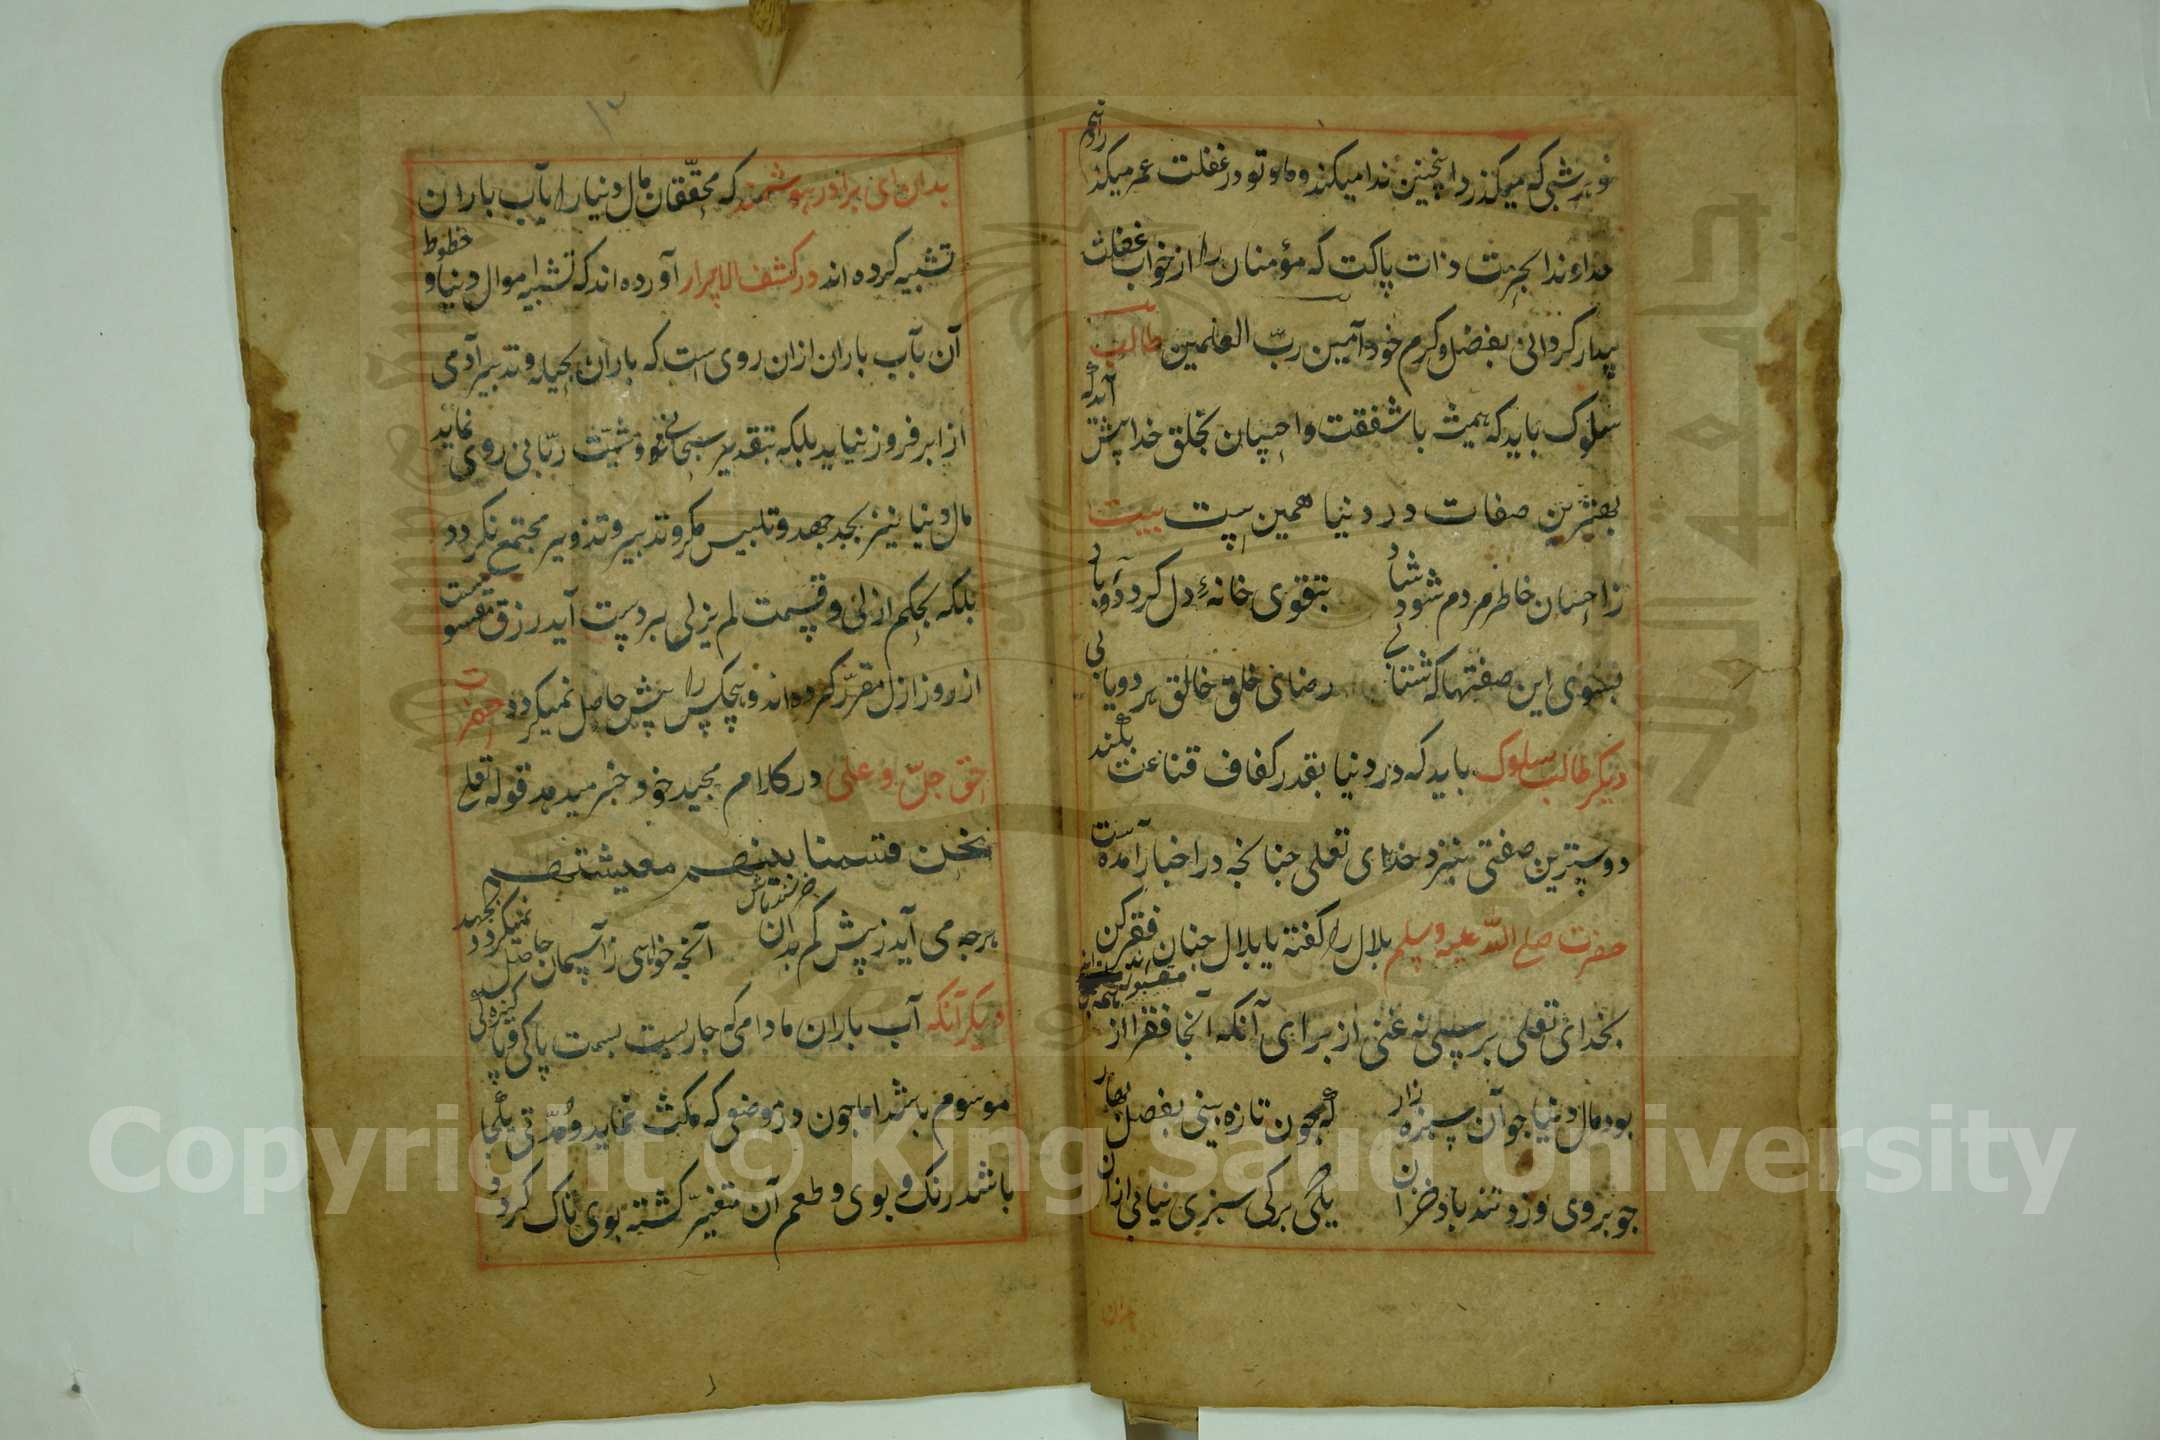 و هر شبی که میگذرد اینچنین ندا میکند و ما و تو در غفلت عمر میگذرانیم
خداوندا بحرمت ذات پاکت که مؤمنان را از خواب غفلت
بیدار کردانی بفضل و کرم خود آمین ربّ العلمین طالب
سلوک باید که همیشه با شفقت و احسان بخلق خدا پیش آید که
بهترین صفات در دنیا همین است بیت
ز احسان خاطر مردم شود شاد بتقوی خانهٔ دل کردد آباد
بسوی این صفتها که شتابی رضای خلق خالق هر دو یابی
دیکر طالب سلوک باید که در دنیا بقدر کفاف قناعت بکند که
دوسترین صفتی بنزد خدای تعلی جنانجه در اخبار آمده است
حضرت صلی الله علیه وسلم بلال را گفته یا بلال جنان فقر کن
بخدای تعلی برسی نه غنی از برای آنکه آنجا فقرا از مقبولند
بود مال دنیا جو آن سبزه زار که جون تازه بینی بفصل بهار
جو بروی وزد تند باد خزان یکی برکی سبزی نیابی ازان
بدان ای برادر هوشمند که محقّقان مال دنیا را بآب باران
تشبیه کرده اند در کشف الاسرار آورده اند که تشبه اموال دنیا و حظوظ
آن بآب باران ازان روی است که باران بحیله و تدبیر آدمی
از ابر فرو نیاید بلکه بتقدیر سبحانی و مشیّت ربّانی روی نماید
مال دنیا نیز بجد جهد و تلبیس مکر و تدبیر و تذویر مجتمع نکردد
بلکه بحکم ازلی و قسمت لم یزلی بر دست آید رزق مقسوم است
از روز ازل مقرّر کرده اند و هیچکس را بیش حاصل نمیکردد حضرت
حق جلّ و علی در کلام مجید خود خبر میدهد قوله تعلی
نحن قسمنا بینهم معیشتهم
هرجه می آید ز بیش کم بدان خرسند باش آنجه خواهی ز آسمان حاصل نمیکردد بجهد
دیکر آنکه آب باران مادامی که جاریست بسمت پاکی و پاکیزه کی
موسوم باشد اما جون در موضوعی که مکث نماید و مدّتی یکجا
باشد رنک و بوی و طعم آن متغیّر کشته بوی ناک کردد و
Copyright © King Saud University